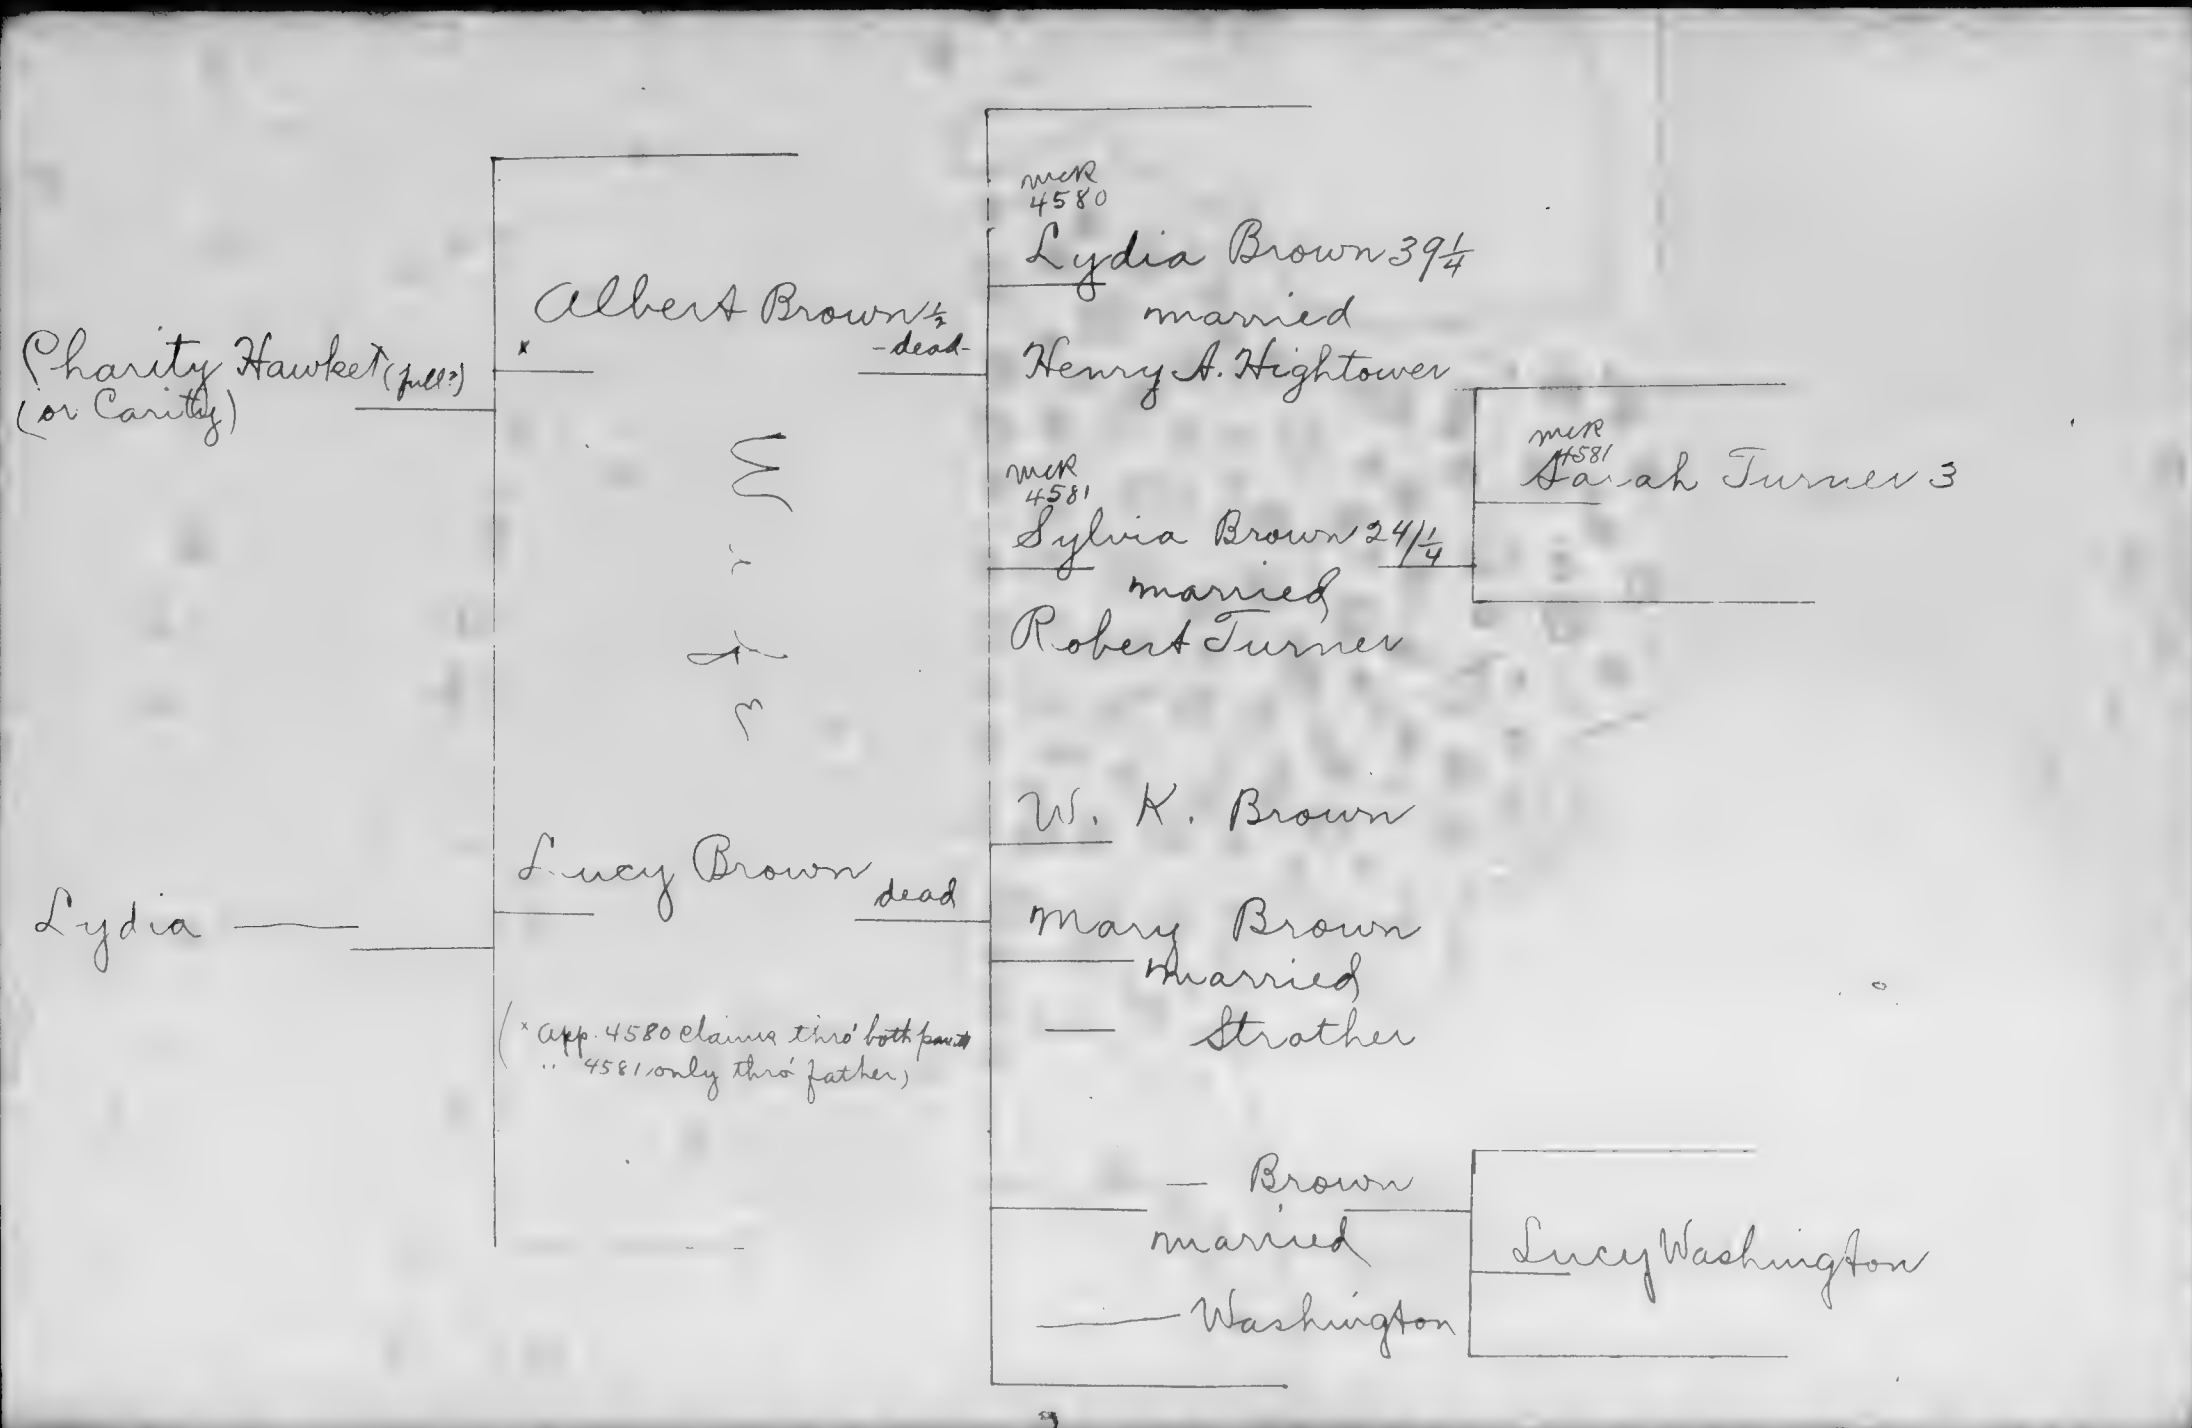 Charity Hawket (full?)
(or Carity)
Lydia
Albert Brown 1/2
-dead-
x
Wife
Lucy Brown
dead
(x App. 4580 claims thro' both
" 4581 only thro' father)
McR
4580
Lydia Brown 39 1/4
married
Henry A. Hightower
McR
4581
Sylvia Brown 24/1/4
married
Robert Turner
W. K. Brown
Mary Brown
married
— Strather
— Brown
married
— Washington
McR
4581
Sarah Turner 3
Lucy Washington